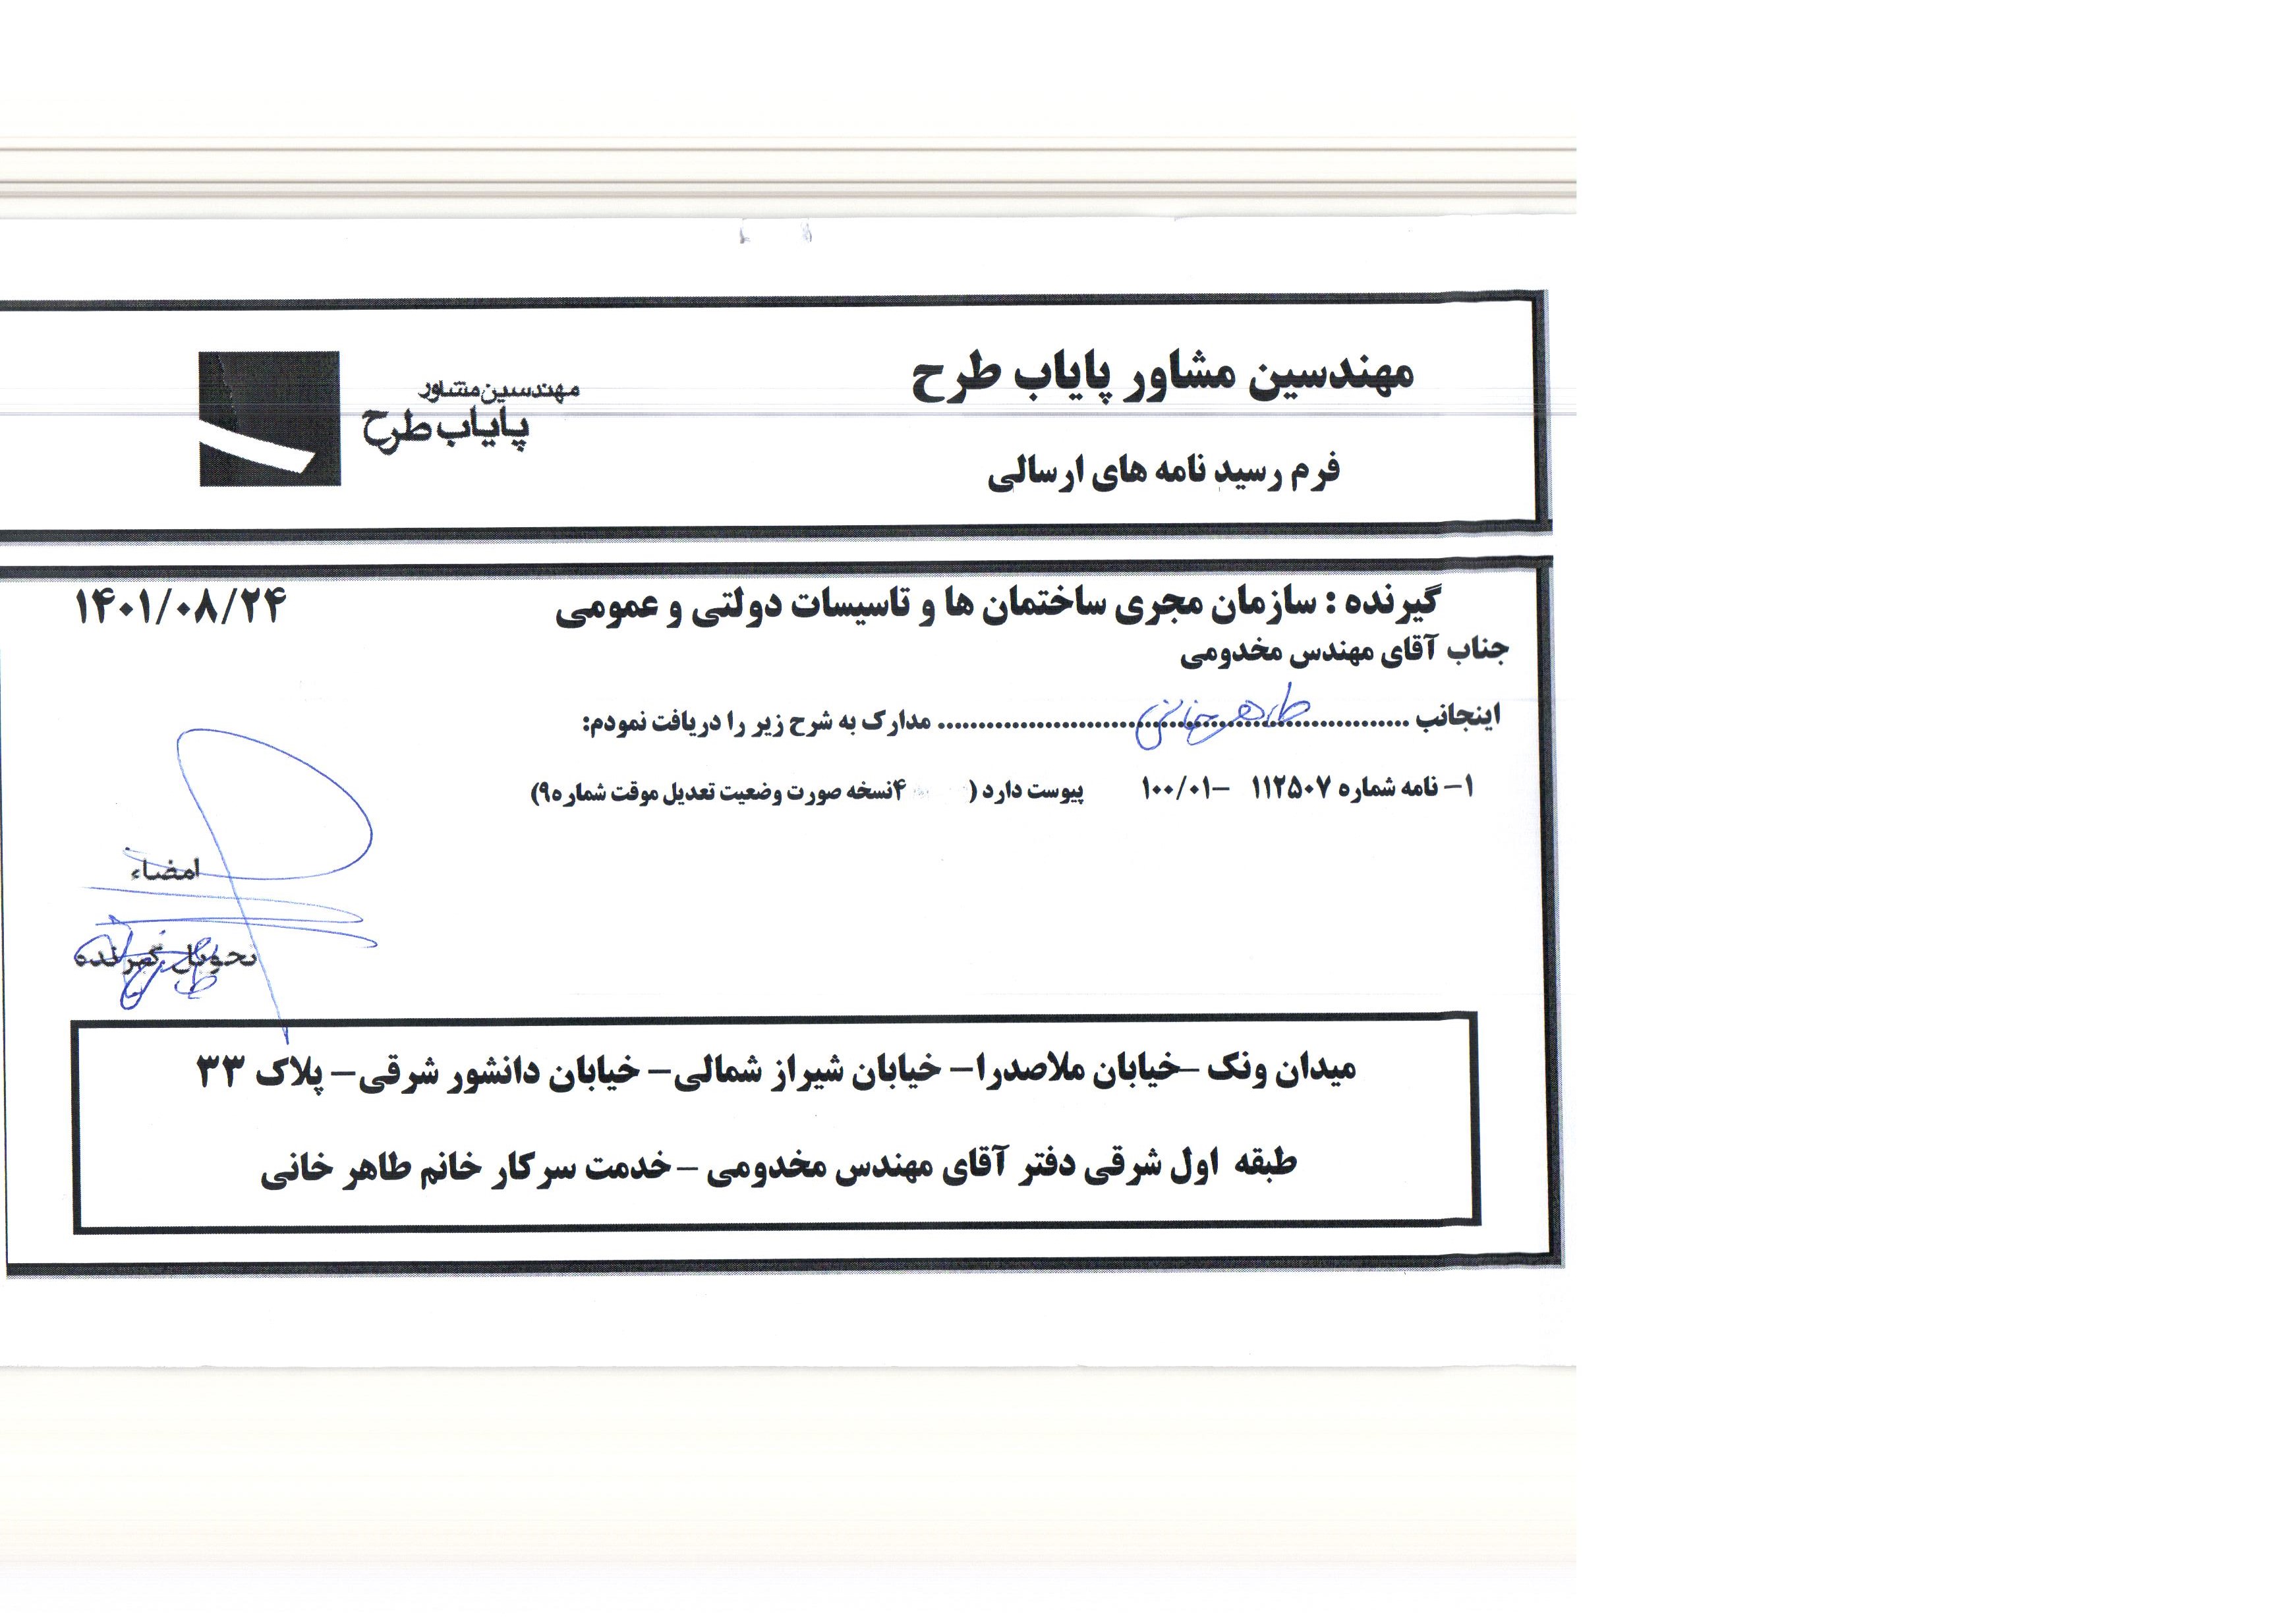 مهندسین مشاور پایاب طرح
مهندسین مشاور
پایاب طرح
فرم رسید نامه های ارسالی
گیرنده : سازمان مجری ساختمان ها و تاسیسات دولتی و عمومی ۱۴۰۱/۰۸/۲۴
جناب آقای مهندس مخدومی
اینجانب ........طاهرخانی........ مدارک به شرح زیر را دریافت نمودم:
۱- نامه شماره ۱۱۲۵۰۷ -۱۰۰/۰۱ پیوست دارد ( ۴نسخه صورت وضعیت تعدیل موقت شماره۹)
امضاء
تحویل گیرنده
طاهرخانی
میدان ونک -خیابان ملاصدرا- خیابان شیراز شمالی- خیابان دانشور شرقی- پلاک ۳۳
طبقه اول شرقی دفتر آقای مهندس مخدومی - خدمت سرکار خانم طاهر خانی